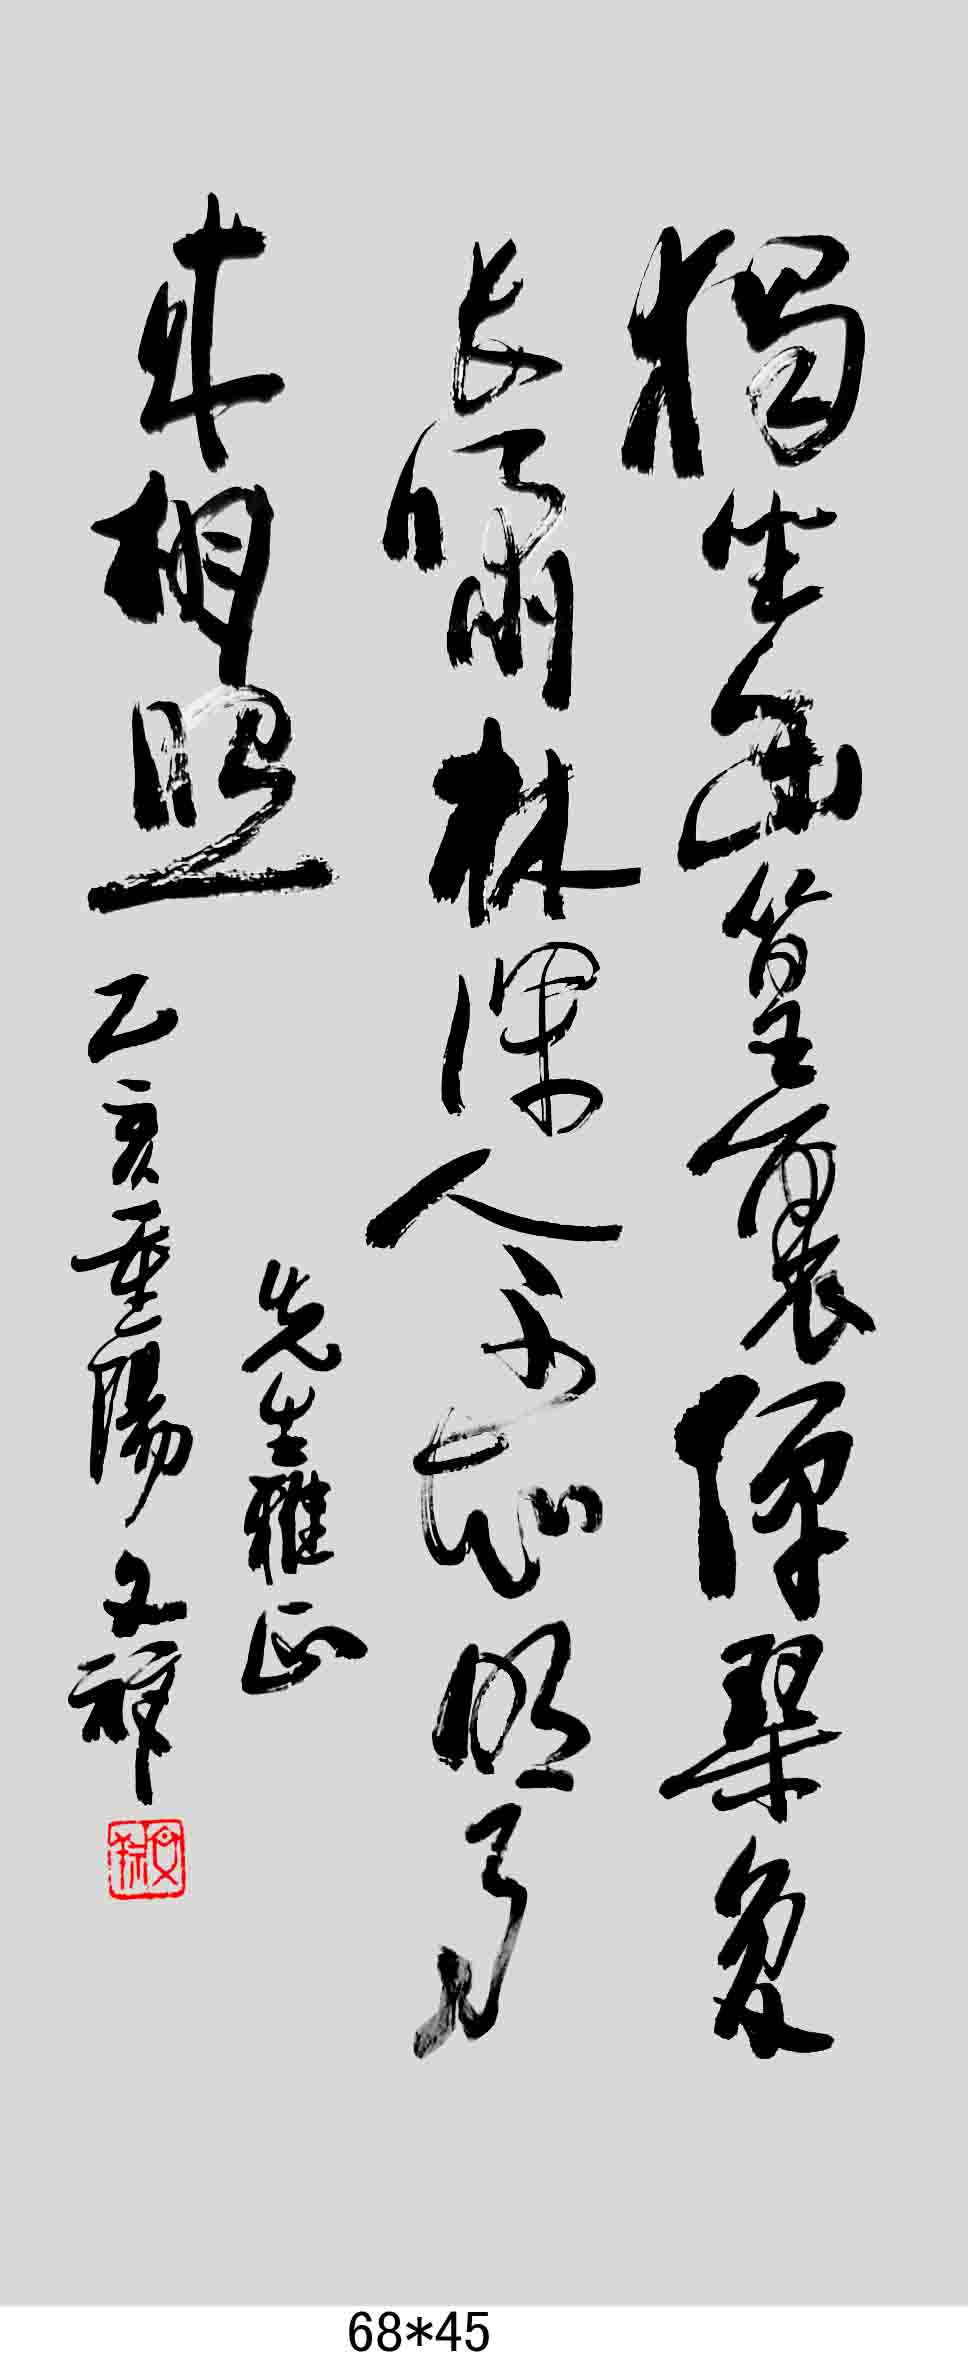 獨坐幽篁裏彈琴復
長嘯林深人不知明月
來相照
先生雅正
乙亥重陽文祥
68*45